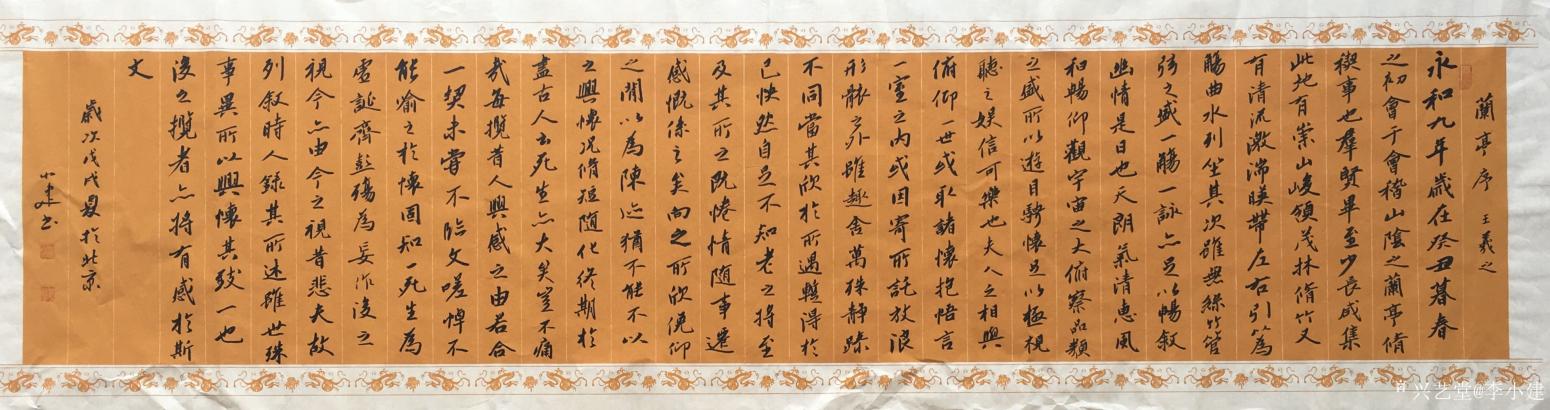 蘭亭序 王羲之
永和九年歲在癸丑暮春
之初會于會稽山陰之蘭亭脩
禊事也羣賢畢至少長咸集
此地有崇山峻領茂林脩竹又
有清流激湍暎帶左右引以為
觴曲水列坐其次雖無絲竹管
弦之盛一觴一詠亦足以暢敘
幽情是日也天朗氣清惠風
和暢仰觀宇宙之大俯察品類
之盛所以遊目騁懷足以極視
聽之娱信可樂也夫人之相與
俯仰一世或取諸懷抱悟言
一室之內或因寄所託放浪
形骸之外雖趣舍萬殊静躁
不同當其欣於所遇暫得於
己怏然自足不知老之將至
及其所之既惓情隨事遷
感慨係之矣向之所欣俛仰
之閒以為陳迹猶不能不以
之興懷况脩短隨化終期於
盡古人云死生亦大矣豈不痛
哉每攬昔人興感之由若合
一契未嘗不臨文嗟悼不
能喻之於懷固知一死生為
虛誕齊彭殤為妄作後之
視今亦由今之視昔悲夫故
列敘時人錄其所述雖世殊
事異所以興懷其致一也
後之攬者亦將有感於斯
文
歲次戊戌夏於北京
小建書
兴艺堂@李小建